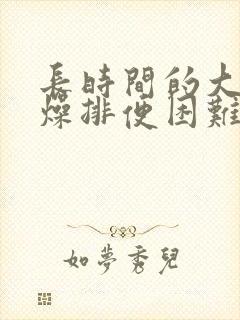 長時間的大
燥排便困難
如夢秀兒